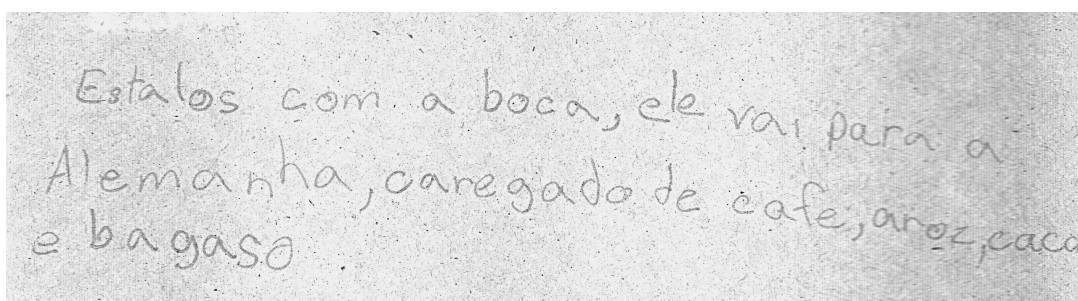 Estalos com a boca, ele vai para a
Alemanha, caregado de cafe, aroz, caca
e bagaso